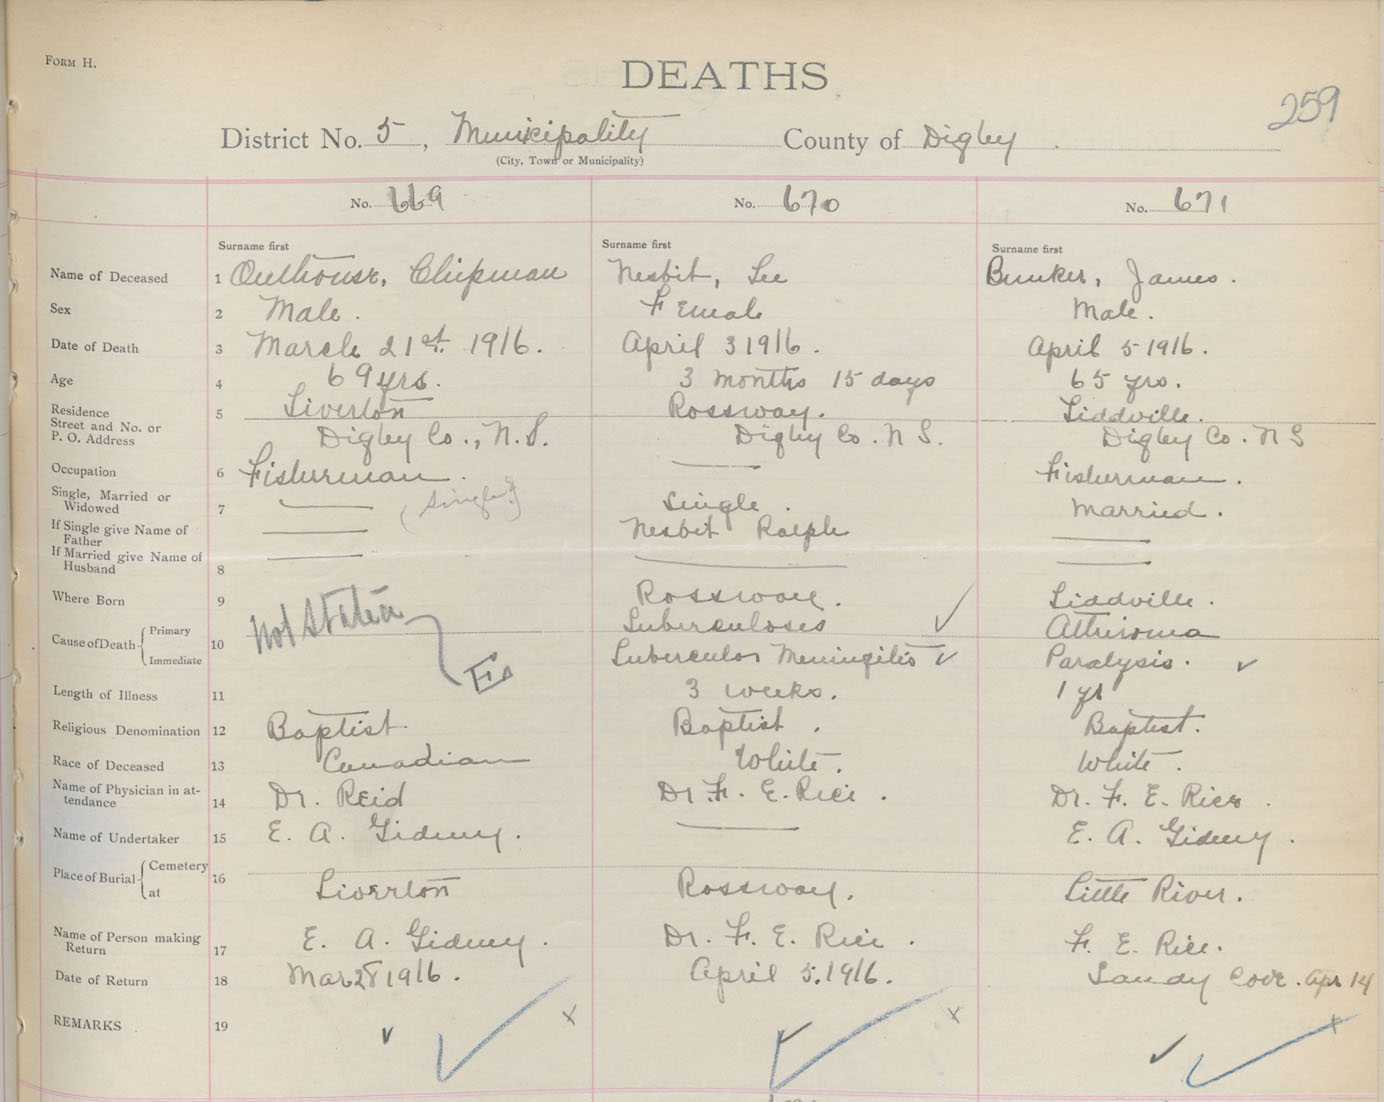 FORM H.
DEATHS
259
District No. 5, Municipality County of Digby.
(City, Town or Municipality)
No. 669 No. 670 No. 671
Surname first Surname first Surname first
Name of Deceased 1 Outhouse, Chipman Nesbit, Lee Bunker, James.
Sex 2 Male. Female Male.
Date of Death 3 March 21st. 1916. April 3 1916. April 5 1916.
Age 4 69 yrs. 3 months 15 days 65 yrs.
Residence 5 Tiverton Rossway. Tiddville.
Street and No. or
P. O. Address Digby Co., N.S. Digby Co. N S. Digby Co. N S
Occupation 6 Fisherman. Fisherman.
Single, Married or
Widowed 7 (Single?) Single. Married.
If Single give Name of
Father Nesbit Ralph
If Married give Name of
Husband 8
Where Born 9 Rossway. Tiddville.
Cause of Death Primary 10 Not Stated Tuberculoses Atheroma
Immediate Tubercular Meningitis Paralysis.
Length of Illness 11 3 weeks. 1 yr
Religious Denomination 12 Baptist Baptist. Baptist.
Race of Deceased 13 Canadian White. White.
Name of Physician in at-
tendance 14 Dr. Reid Dr. F. E. Rice. Dr. F. E. Rice.
Name of Undertaker 15 E. A. Gidney. E. A. Gidney.
Place of Burial Cemetery 16
at Tiverton Rossway. Little River.
Name of Person making
Return 17 E. A. Gidney. Dr. F. E. Rice. F. E. Rice.
Date of Return 18 Mar 28 1916. April 5. 1916. Sandy Cove. Apr 14
REMARKS 19